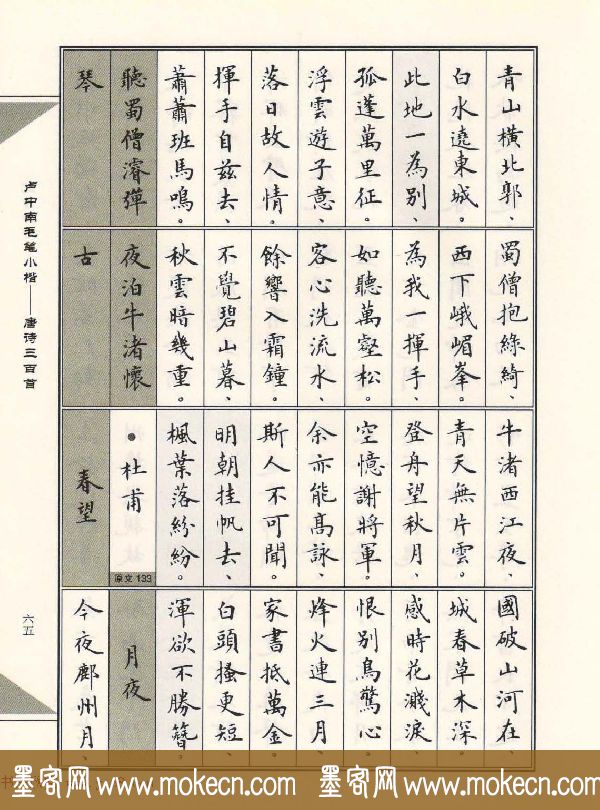 青山橫北郭、
白水遶東城。
此地一為別、
孤蓬萬里征。
浮雲遊子意、
落日故人情。
揮手自兹去、
蕭蕭班馬鳴。
聽蜀僧濬彈
琴
蜀僧抱綠綺、
西下峨嵋峯。
為我一揮手、
如聽萬壑松。
客心洗流水、
餘響入霜鐘。
不覺碧山暮、
秋雲暗幾重。
夜泊牛渚懷
古
牛渚西江夜、
青天無片雲。
登舟望秋月、
空憶謝將軍。
余亦能高詠、
斯人不可聞。
明朝挂帆去、
楓葉落紛紛。
•杜甫
原文 133
春望
國破山河在、
城春草木深。
感時花濺淚、
恨別鳥驚心。
烽火連三月、
家書抵萬金。
白頭搔更短、
渾欲不勝簪。
月夜
今夜鄜州月、
卢中南毛笔小楷——唐诗三百首
六五
墨客网 www.mokecn.com 墨客网 www.mokecn.com